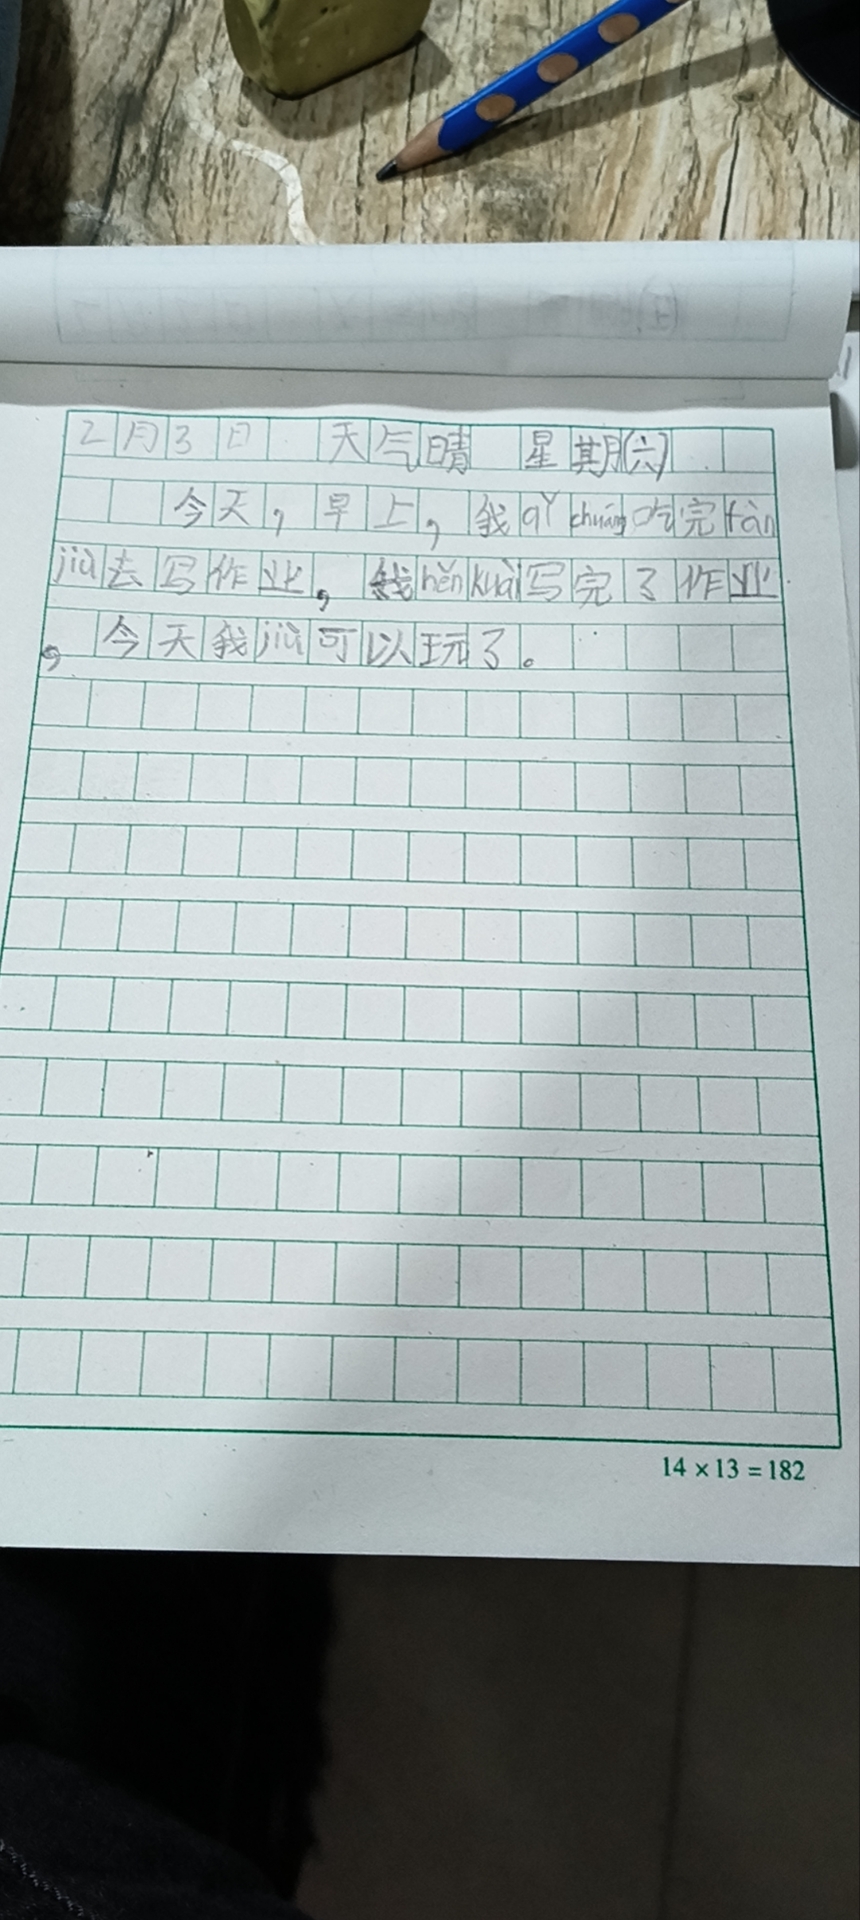 2月3日 天气晴 星期(六)
今天，早上，我qǐ chuáng吃完fàn
jiù去写作业，我hěn kuài写完了作业
，今天我jiù可以玩了。
14×13=182